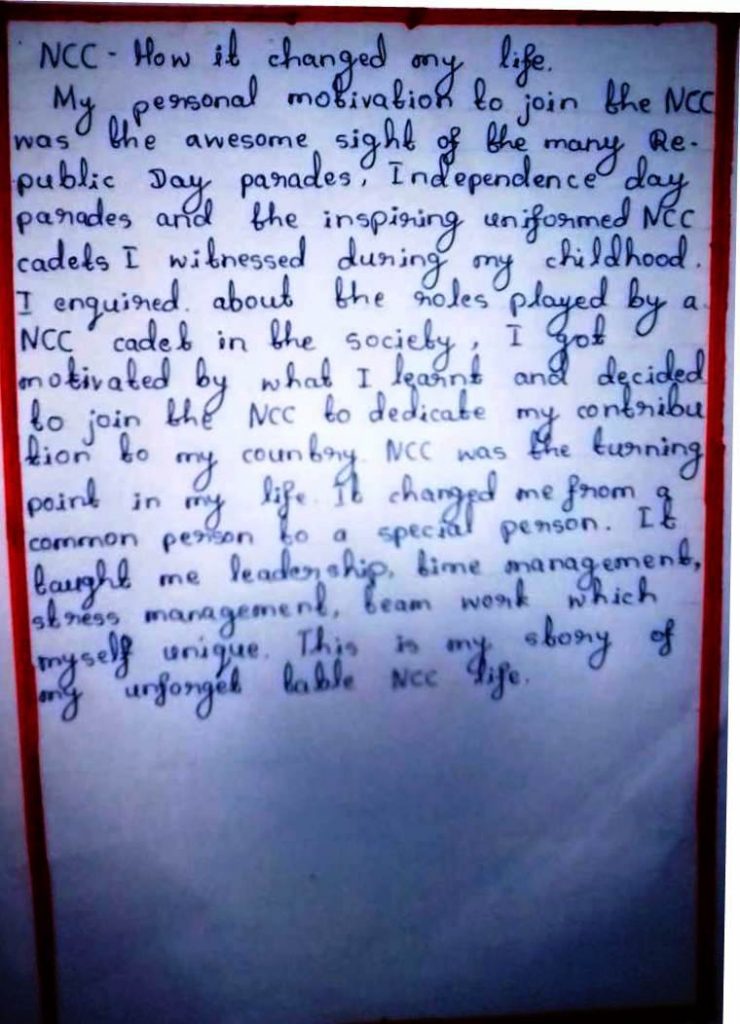 NCC - How it changed my life.
My personal motivation to join the NCC
was the awesome sight of the many Re-
public Day parades, Independence day
parades and the inspiring uniformed NCC
cadets I witnessed during my childhood.
I enquired. about the roles played by a
NCC cadet in the society, I got
motivated by what I learnt and decided
to join the NCC to dedicate my contribu
tion to my country. NCC was the turning
point in my life. It changed me from a
common person to a special person. It
taught me leadership, time management,
stress management, team work which
myself unique. This is my story of
my unforget table NCC life.